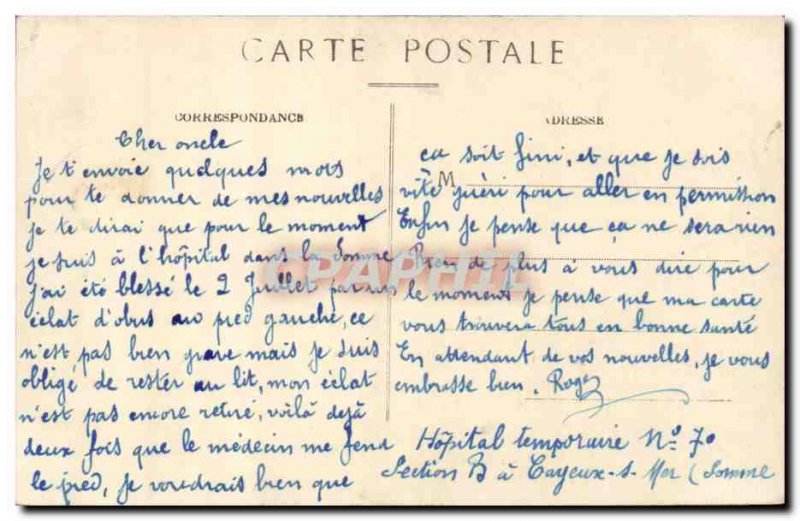 CARTE POSTALE
CORRESPONDANCE
Cher oncle
Je t'envoie quelques mots
pour te donner de mes nouvelles
je te dirai que pour le moment
je suis à l'hôpital dans la Somme
j'ai été blessé le 2 Juillet par un
éclat d'obus au pied gauche, ce
n'est pas bien grave mais je suis
obligé de rester au lit, mon éclat
n'est pas encore retiré, voilà déjà
deux fois que le médecin me fend
le pied, je voudrais bien que
ADRESSE
ça soit fini, et que je sois
M
vite guéri pour aller en permission
Enfin je pense que ça ne sera rien
Rien de plus à vous dire pour
le moment je pense que ma carte
vous trouvera tous en bonne santé
En attendant de vos nouvelles, je vous
embrasse bien. Roger
Hôpital temporaire No. 70
Section B à Cayeux-s-Mer (Somme
CPAPHIL